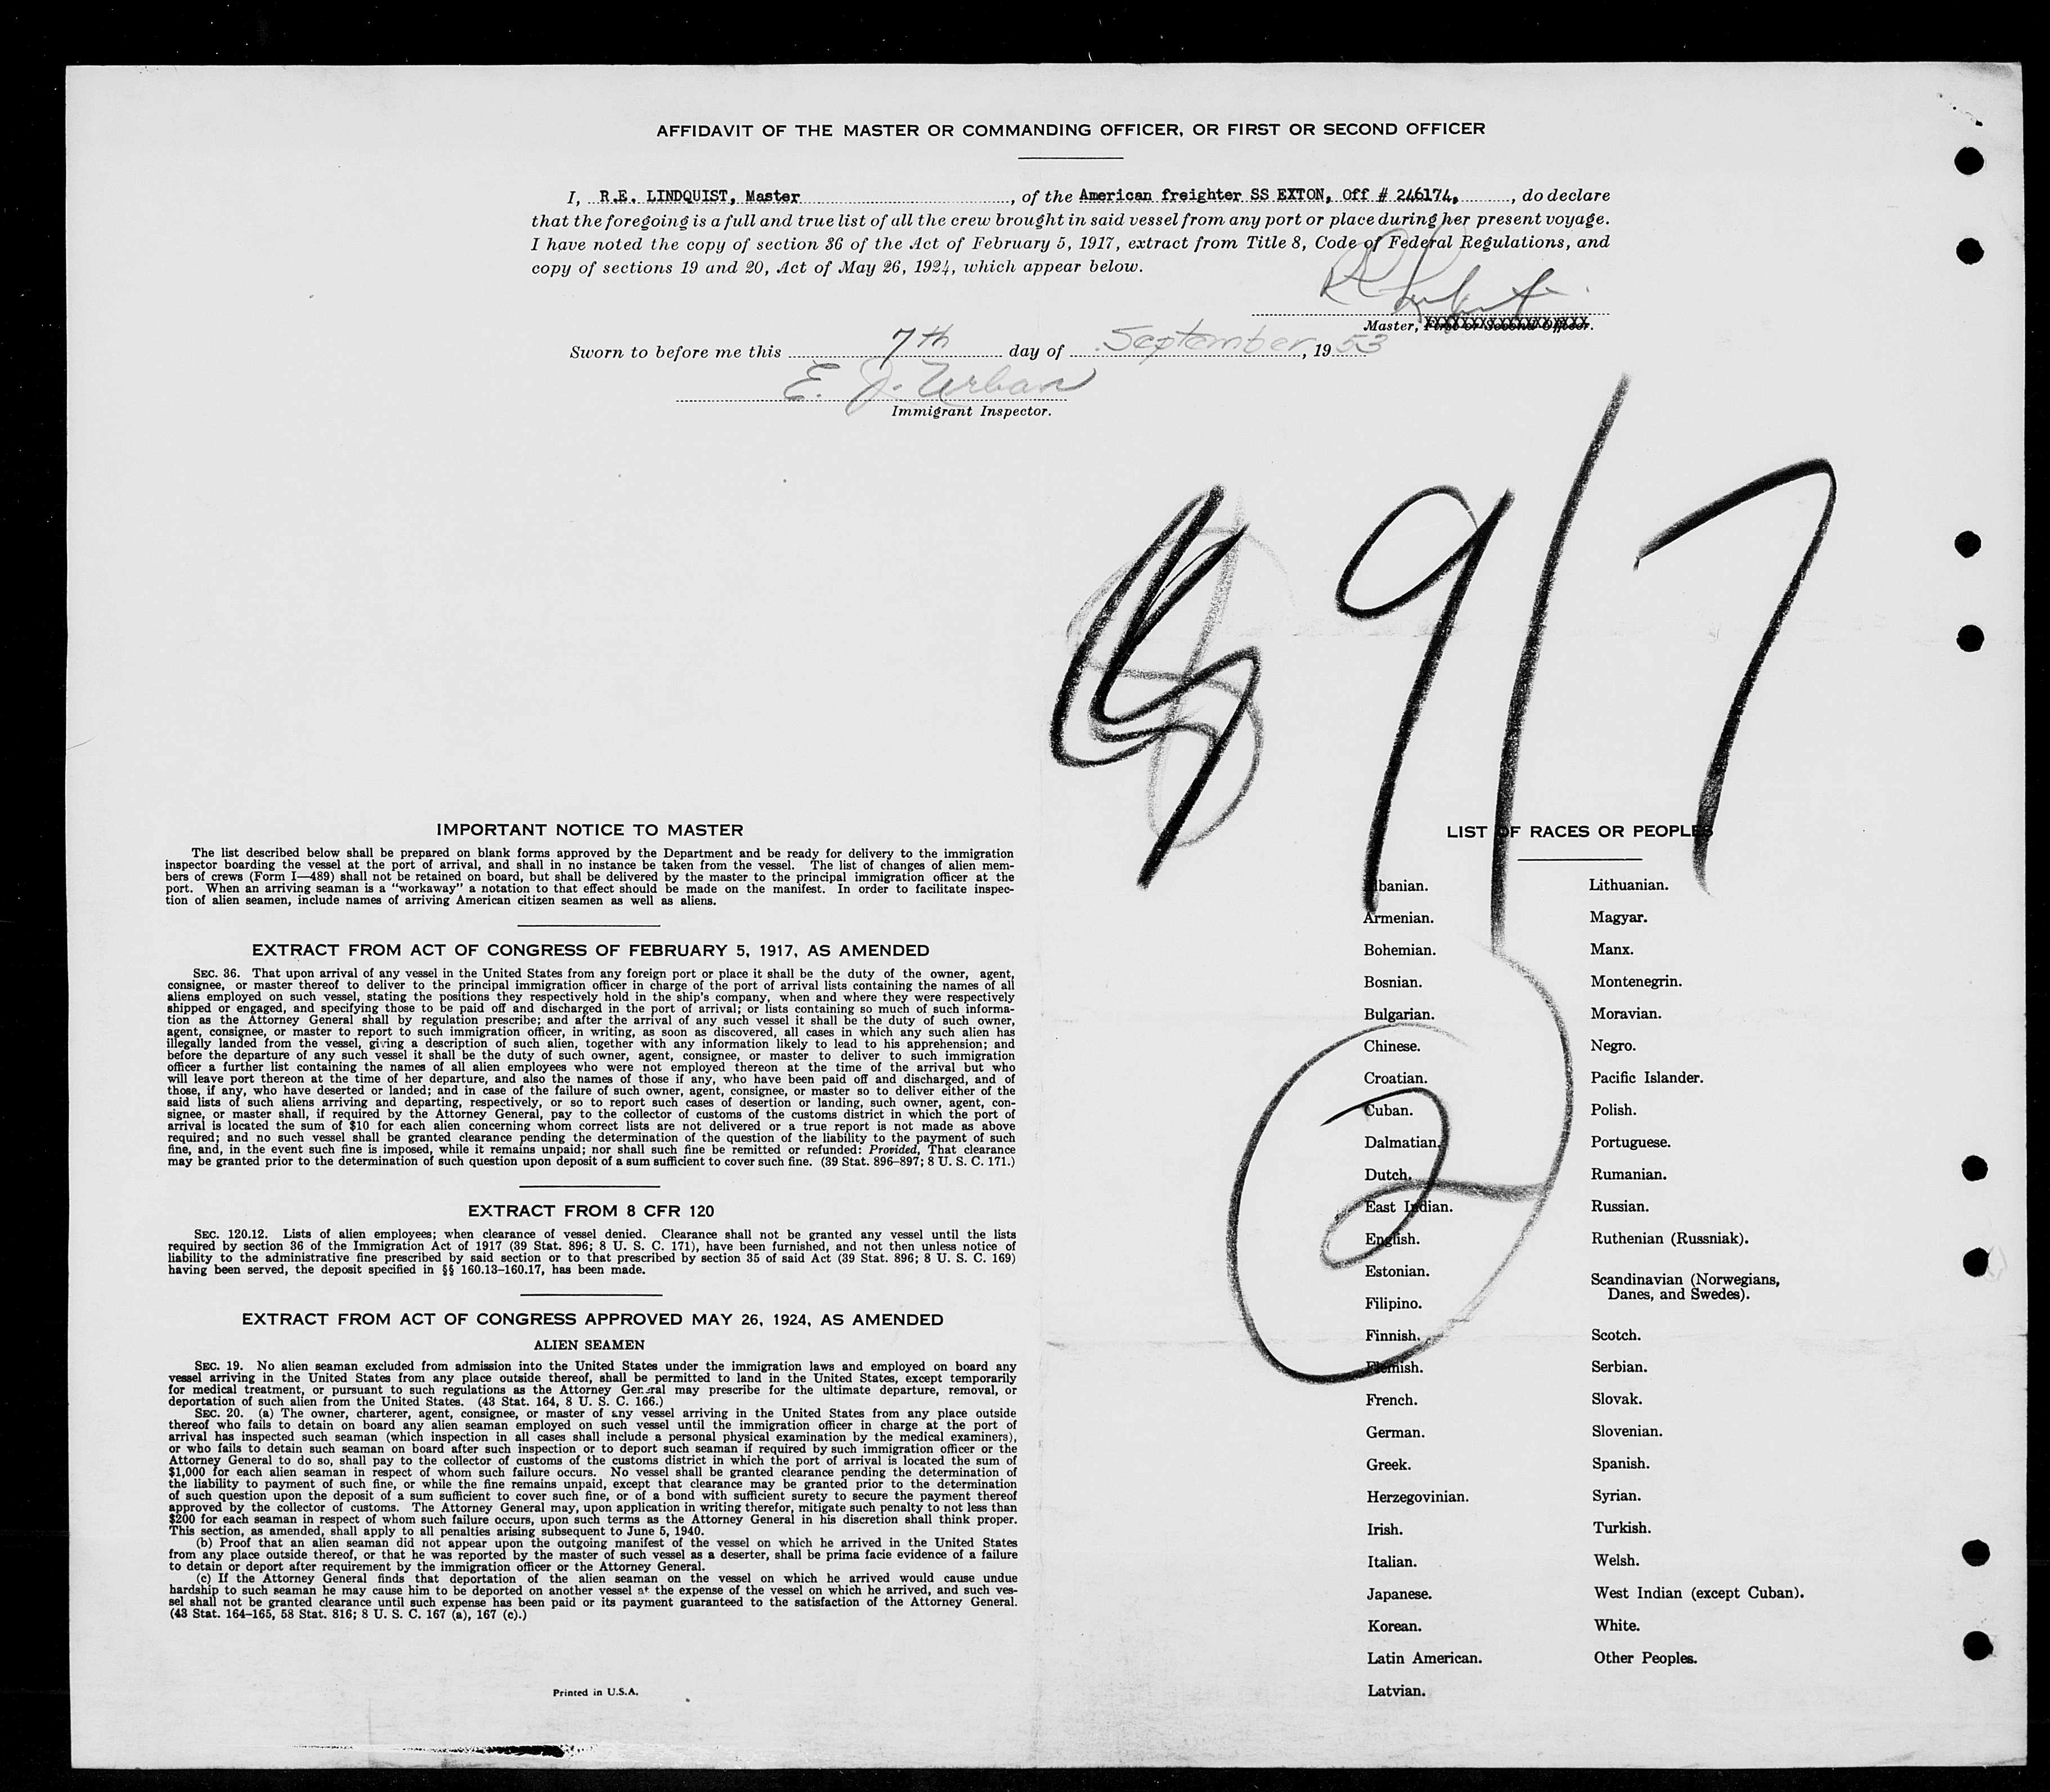 AFFIDAVIT OF THE MASTER OR COMMANDING OFFICER, OR FIRST OR SECOND OFFICER
I, R.E. LINDQUIST, Master, of the American freighter SS EXTON, Off # 246174, do declare
that the foregoing is a full and true list of all the crew brought in said vessel from any port or place during her present voyage.
I have noted the copy of section 36 of the Act of February 5, 1917, extract from Title 8, Code of Federal Regulations, and
copy of sections 19 and 20, Act of May 26, 1924, which appear below.
Master, First or Second Officer.
Sworn to before me this 7th day of September, 1953
E. J. Urban
Immigrant Inspector.
9/7
2
IMPORTANT NOTICE TO MASTER
The list described below shall be prepared on blank forms approved by the Department and be ready for delivery to the immigration
inspector boarding the vessel at the port of arrival, and shall in no instance be taken from the vessel. The list of changes of alien mem-
bers of crews (Form I—489) shall not be retained on board, but shall be delivered by the master to the principal immigration officer at the
port. When an arriving seaman is a "workaway" a notation to that effect should be made on the manifest. In order to facilitate inspec-
tion of alien seamen, include names of arriving American citizen seamen as well as aliens.
EXTRACT FROM ACT OF CONGRESS OF FEBRUARY 5, 1917, AS AMENDED
SEC. 36. That upon arrival of any vessel in the United States from any foreign port or place it shall be the duty of the owner, agent,
consignee, or master thereof to deliver to the principal immigration officer in charge of the port of arrival lists containing the names of all
aliens employed on such vessel, stating the positions they respectively hold in the ship's company, when and where they were respectively
shipped or engaged, and specifying those to be paid off and discharged in the port of arrival; or lists containing so much of such informa-
tion as the Attorney General shall by regulation prescribe; and after the arrival of any such vessel it shall be the duty of such owner,
agent, consignee, or master to report to such immigration officer, in writing, as soon as discovered, all cases in which any such alien has
illegally landed from the vessel, giving a description of such alien, together with any information likely to lead to his apprehension; and
before the departure of any such vessel it shall be the duty of such owner, agent, consignee, or master to deliver to such immigration
officer a further list containing the names of all alien employees who were not employed thereon at the time of the arrival but who
will leave port thereon at the time of her departure, and also the names of those if any, who have been paid off and discharged, and of
those, if any, who have deserted or landed; and in case of the failure of such owner, agent, consignee, or master so to deliver either of the
said lists of such aliens arriving and departing, respectively, or so to report such cases of desertion or landing, such owner, agent, con-
signee, or master shall, if required by the Attorney General, pay to the collector of customs of the customs district in which the port of
arrival is located the sum of $10 for each alien concerning whom correct lists are not delivered or a true report is not made as above
required; and no such vessel shall be granted clearance pending the determination of the question of the liability to the payment of such
fine, and, in the event such fine is imposed, while it remains unpaid; nor shall such fine be remitted or refunded: Provided, That clearance
may be granted prior to the determination of such question upon deposit of a sum sufficient to cover such fine. (39 Stat. 896–897; 8 U. S. C. 171.)
EXTRACT FROM 8 CFR 120
SEC. 120.12. Lists of alien employees; when clearance of vessel denied. Clearance shall not be granted any vessel until the lists
required by section 36 of the Immigration Act of 1917 (39 Stat. 896; 8 U. S. C. 171), have been furnished, and not then unless notice of
liability to the administrative fine prescribed by said section or to that prescribed by section 35 of said Act (39 Stat. 896; 8 U. S. C. 169)
having been served, the deposit specified in §§ 160.13–160.17, has been made.
EXTRACT FROM ACT OF CONGRESS APPROVED MAY 26, 1924, AS AMENDED
ALIEN SEAMEN
SEC. 19. No alien seaman excluded from admission into the United States under the immigration laws and employed on board any
vessel arriving in the United States from any place outside thereof, shall be permitted to land in the United States, except temporarily
for medical treatment, or pursuant to such regulations as the Attorney General may prescribe for the ultimate departure, removal, or
deportation of such alien from the United States. (43 Stat. 164, 8 U. S. C. 166.)
SEC. 20. (a) The owner, charterer, agent, consignee, or master of any vessel arriving in the United States from any place outside
thereof who fails to detain on board any alien seaman employed on such vessel until the immigration officer in charge at the port of
arrival has inspected such seaman (which inspection in all cases shall include a personal physical examination by the medical examiners),
or who fails to detain such seaman on board after such inspection or to deport such seaman if required by such immigration officer or the
Attorney General to do so, shall pay to the collector of customs of the customs district in which the port of arrival is located the sum of
$1,000 for each alien seaman in respect of whom such failure occurs. No vessel shall be granted clearance pending the determination of
the liability to payment of such fine, or while the fine remains unpaid, except that clearance may be granted prior to the determination
of such question upon the deposit of a sum sufficient to cover such fine, or of a bond with sufficient surety to secure the payment thereof
approved by the collector of customs. The Attorney General may, upon application in writing therefor, mitigate such penalty to not less than
$200 for each seaman in respect of whom such failure occurs, upon such terms as the Attorney General in his discretion shall think proper.
This section, as amended, shall apply to all penalties arising subsequent to June 5, 1940.
(b) Proof that an alien seaman did not appear upon the outgoing manifest of the vessel on which he arrived in the United States
from any place outside thereof, or that he was reported by the master of such vessel as a deserter, shall be prima facie evidence of a failure
to detain or deport after requirement by the immigration officer or the Attorney General.
(c) If the Attorney General finds that deportation of the alien seaman on the vessel on which he arrived would cause undue
hardship to such seaman he may cause him to be deported on another vessel at the expense of the vessel on which he arrived, and such ves-
sel shall not be granted clearance until such expense has been paid or its payment guaranteed to the satisfaction of the Attorney General.
(43 Stat. 164–165, 58 Stat. 816; 8 U. S. C. 167 (a), 167 (c).)
Printed in U.S.A.
LIST OF RACES OR PEOPLES
Albanian.
Armenian.
Bohemian.
Bosnian.
Bulgarian.
Chinese.
Croatian.
Cuban.
Dalmatian.
Dutch.
East Indian.
English.
Estonian.
Filipino.
Finnish.
Flemish.
French.
German.
Greek.
Herzegovinian.
Irish.
Italian.
Japanese.
Korean.
Latin American.
Latvian.
Lithuanian.
Magyar.
Manx.
Montenegrin.
Moravian.
Negro.
Pacific Islander.
Polish.
Portuguese.
Rumanian.
Russian.
Ruthenian (Russniak).
Scandinavian (Norwegians,
Danes, and Swedes).
Scotch.
Serbian.
Slovak.
Slovenian.
Spanish.
Syrian.
Turkish.
Welsh.
West Indian (except Cuban).
White.
Other Peoples.